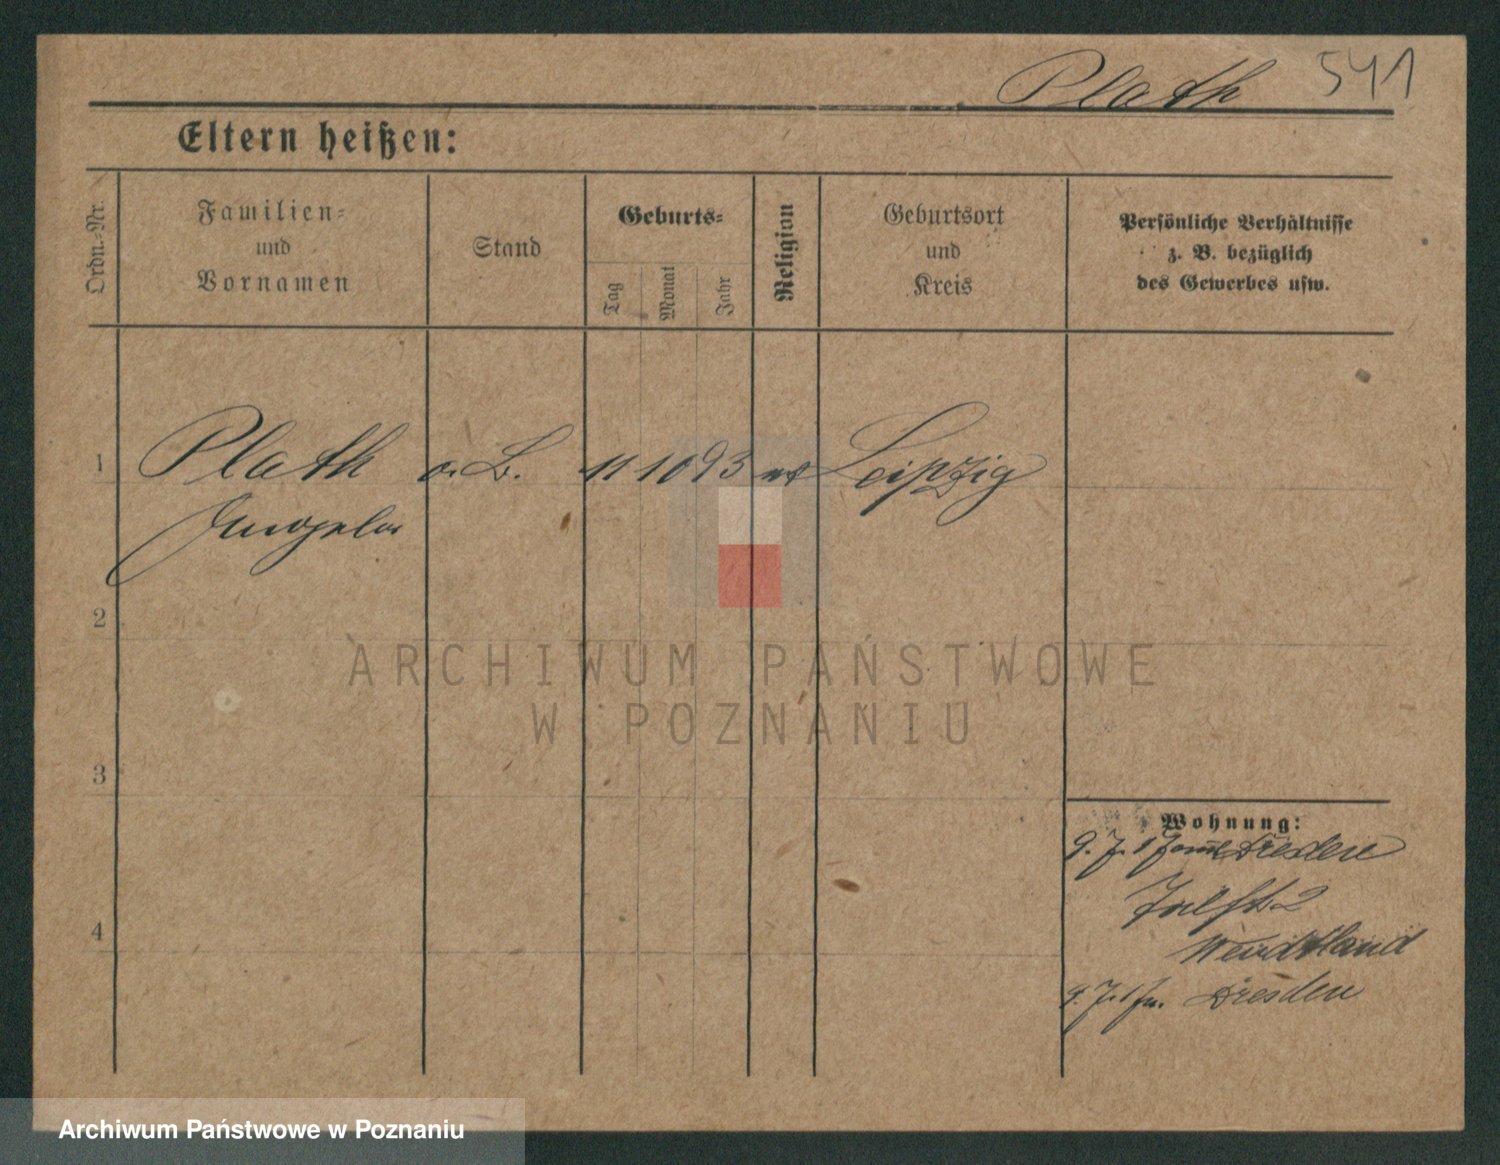 Plath 541
Eltern heißen:
Ordn.-Nr.
Familien-
und
Vornamen
Stand
Geburts-
Tag
Monat
Jahr
Religion
Geburtsort
und
Kreis
Persönliche Verhältnisse
z. B. bezüglich
des Gewerbes usw.
1 Plath o. B. 11 10 93 Leipzig
2
3
4
Wohnung:
Dresden
2
Dresden
ARCHIWUM PAŃSTWOWE
W POZNANIU
Archiwum Państwowe w Poznaniu